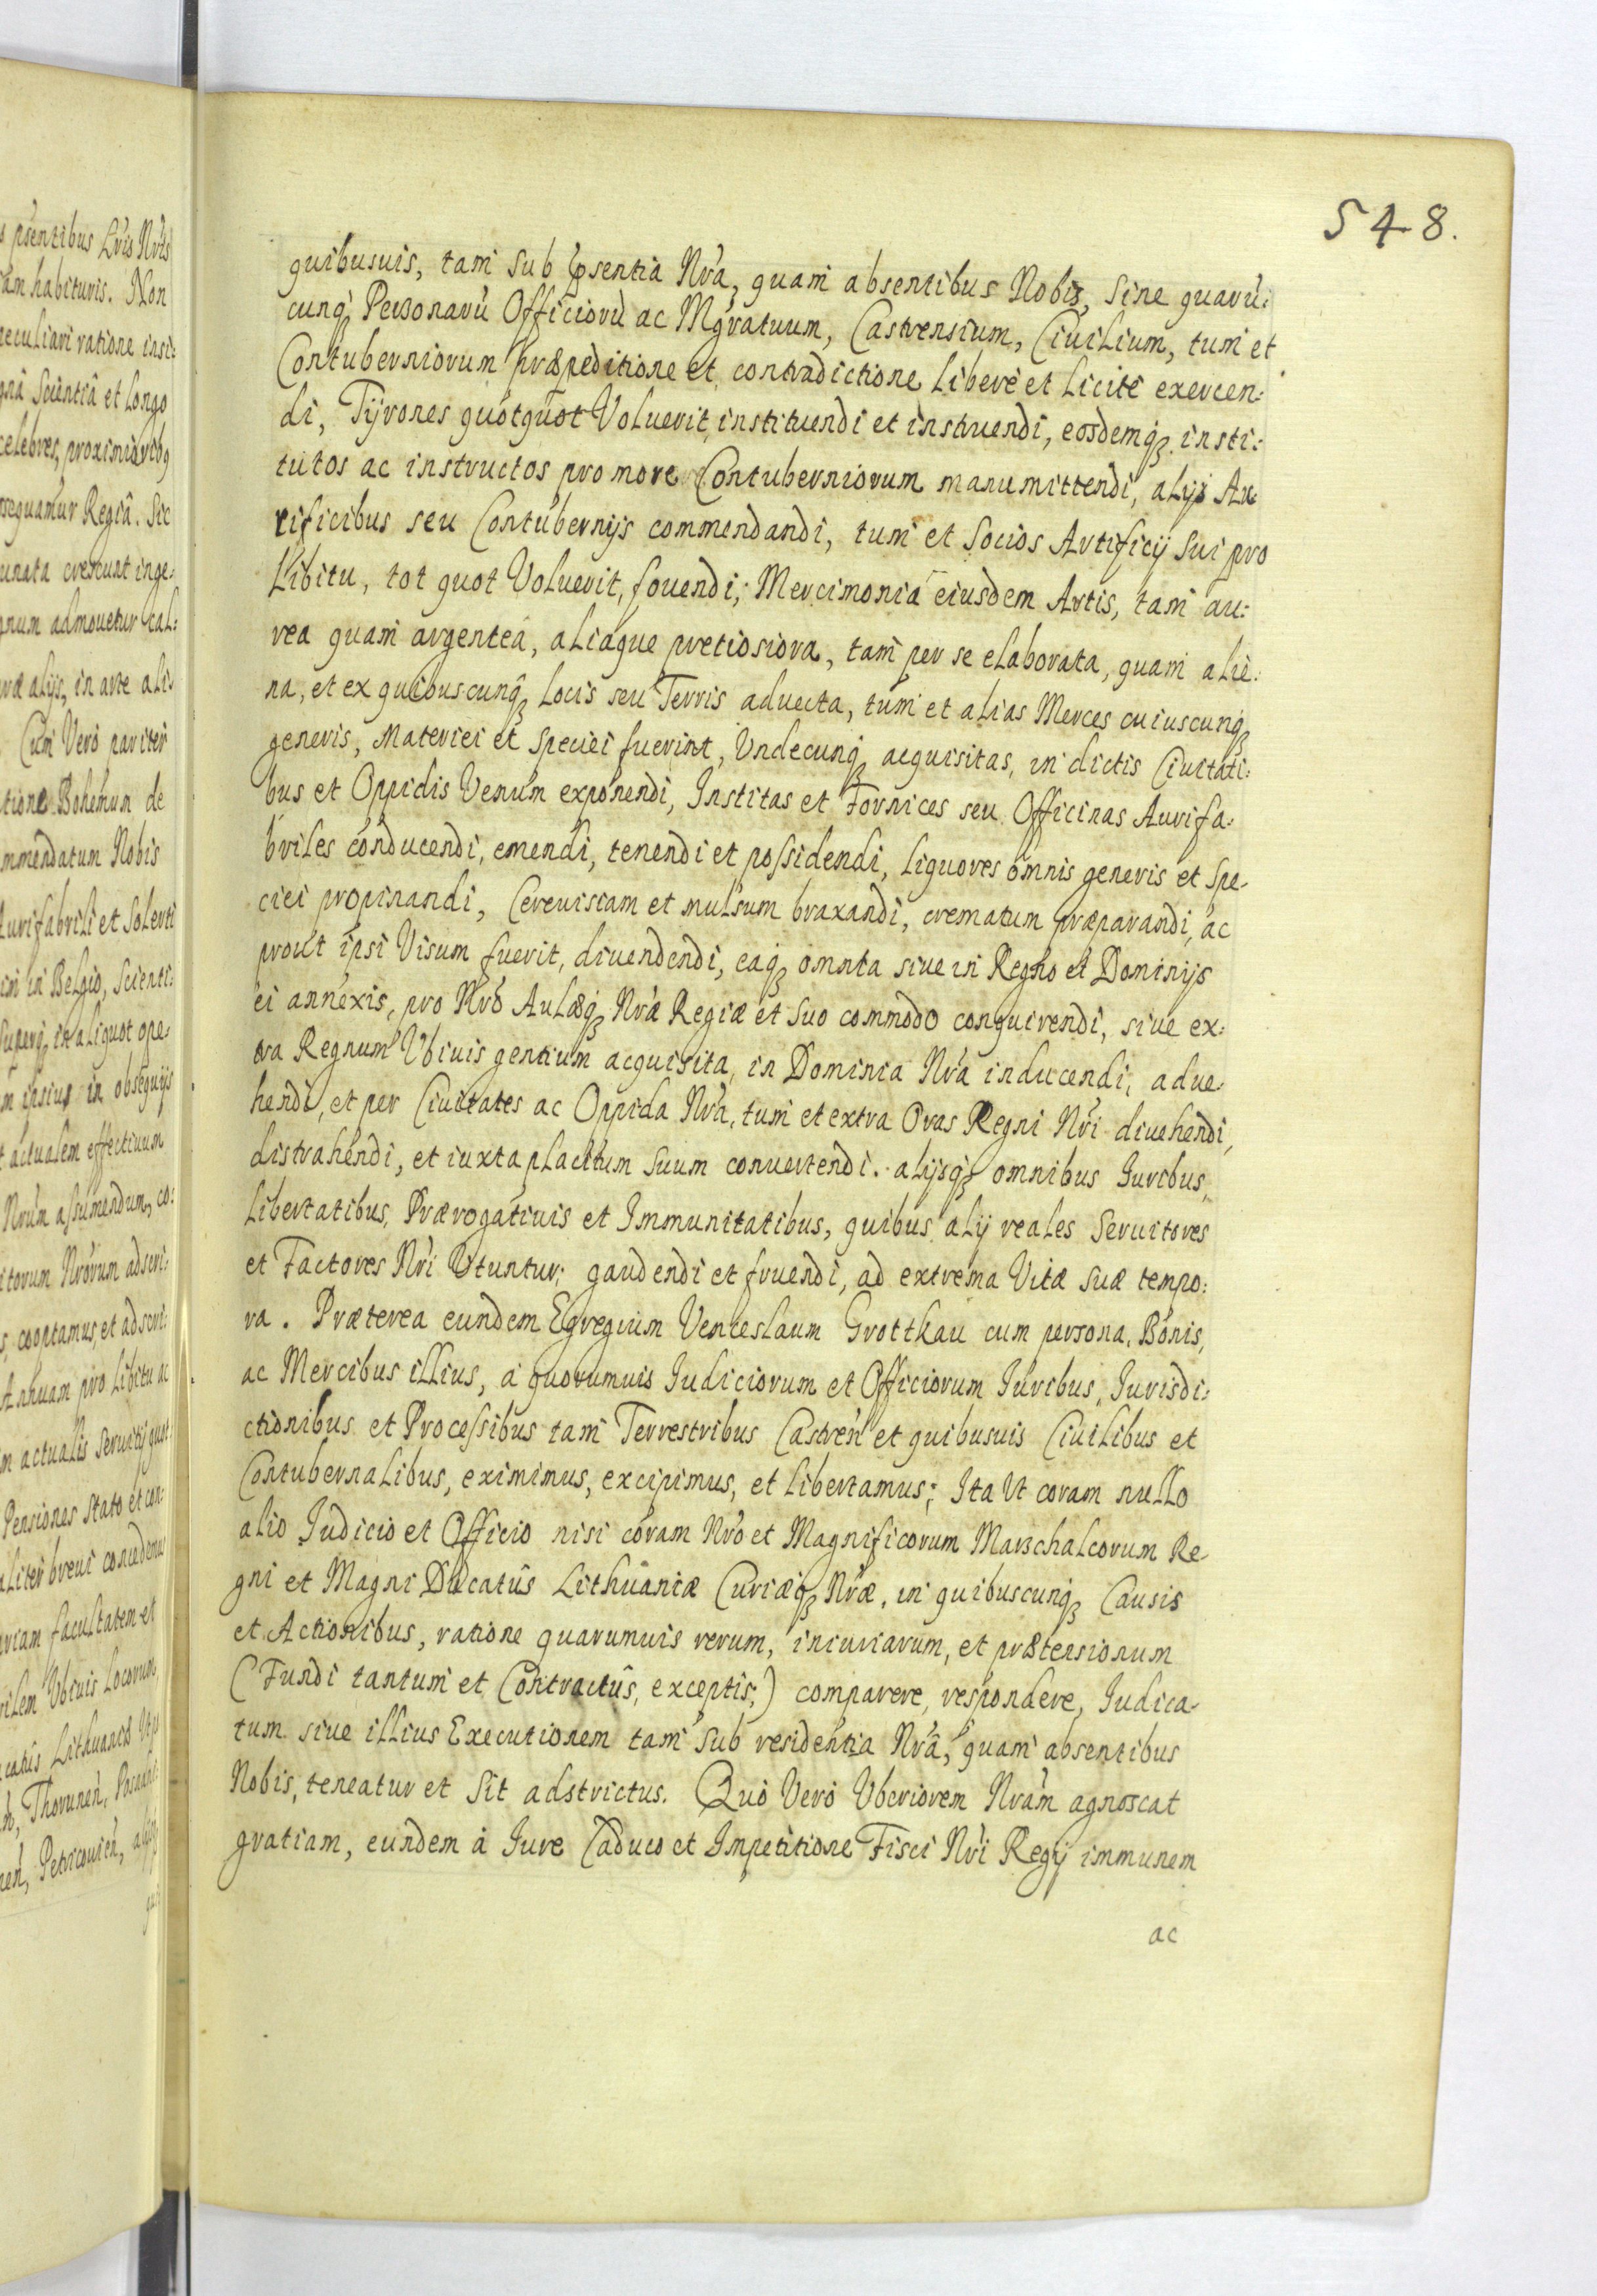 548.
quibusuis, tam̀ sub p̀sentia Nr̀a, quam̀ absentibus Nobis, sine quarù:
cunq̀ Personarù Officiorù ac Mgr̀atuum, Castrensium, Ciuilium, tum̀ et
Contuberniorum præpeditione et contradictione liberè et licitè exercen:
di, Tÿrones quotquot Voluerit instituendi et instruendi, eosdemqꝫ insti:
tutos ac instructos pro more Contuberniorum manumittendi, alijs Ar
tificibus seu Contubernijs commendandi, tum̀ et Socios Artificij sui pro
Libitu, tot quot Voluerit, fouendi; Mercimonia eiusdem Artis, tam̀ au:
rea quam̀ argentea, aliaque pretiosiora, tam̀ per se elaborata, quam̀ alie:
na, et ex quibuscunqꝫ locis seu Terris aduecta, tum̀ et alias Merces cuiuscunqꝫ
generis, Materiei et speciei fuerint, Undecunqꝫ acquisitas, in dictis Ciuitati:
bus et Oppidis Venum exponendi, Institas et Fornices seu Officinas Aurifa:
briles conducendi, emendi, tenendi et possidendi, liquores omnis generis et spe-
ciei propinandi, Cereuisiam et mulsum braxandi, crematum præparandi, ac
prout ipsi Visum fuerit, diuendendi, eaqꝫ omnia siue in Regno et Dominijs
ei annexis, pro Nr̀o Aulæqꝫ Nr̀æ Regiæ et suo commodo conquirendi, siue ex:
tra Regnum Ubiuis gentium acquisita, in Dominia Nr̀a inducendi, adue-
hendi, et per Ciuitates ac Oppida Nr̀a, tum̀ et extra Oras Regni Nr̀i diuehendi,
distrahendi, et iuxta placitum suum conuertendi. alijsqꝫ omnibus Iuribus,
Libertatibus, Prærogatiuis et Immunitatibus, quibus alij reales Seruitores
et Factores Nr̀i Utuntur; gaudendi et fruendi, ad extrema Vitæ suæ tempo:
ra. Præterea eundem Egregium Venceslaum Grotthau cum persona, Bonis,
ac Mercibus illius, à quorumuis Iudiciorum et Officiorum Iuribus, Iurisdi:
ctionibus et Processibus tam̀ Terrestribus Castreǹ et quibusuis Ciuilibus et
Contubernalibus, eximimus, excipimus, et libertamus; Ita Ut coram nullo
alio Iudicio et Officio nisi coram Nr̀o et Magnificorum Marschalcorum Re-
gni et Magni Ducatûs Lithuaniæ Curiæqꝫ Nr̀æ, in quibuscunqꝫ Causis
et Actionibus, ratione quarumuis rerum, iniuriarum, et prætensionum
(Fundi tantum̀ et Contractûs, exceptis;) comparere, respondere, Iudica-
tum siue illius Executionem tam̀ sub residentia Nr̂a, quam̀ absentibus
Nobis, teneatur et sit adstrictus. Quò Verò Vberiorem Nr̀am agnoscat
gratiam, eundem à Iure Caduco et Impetitione Fisci Nr̀i Regij immunem
ac